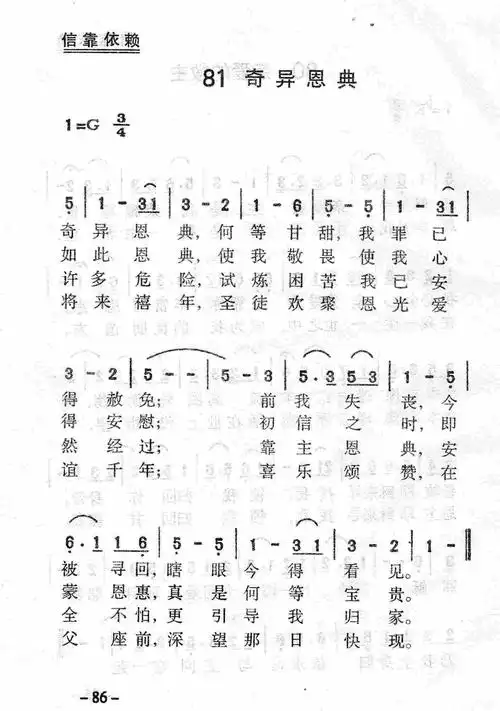 信靠依赖
81 奇异恩典
1=G 3/4
5 | 1 - 31 | 3 - 2 | 1 - 6 | 5 - 5 | 1 - 31 |
奇异恩典,何等甘甜,我罪已
如此恩典,使我敬畏使我心
许多危险,试炼困苦我已安
将来禧年,圣徒欢聚恩光爱
3 - 2 | 5 - - | 5 - 3 | 5·3 53 | 1 - 5 |
得赦免;前我失丧,今
得安慰;初信之时,即
然经过;靠主恩典,安
谊千年;喜乐颂赞,在
6·1 16 | 5 - 5 | 1 - 31 | 3 - 2 | 1 - ‖
被寻回,瞎眼今得看见。
蒙恩惠,真是何等宝贵。
全不怕,更引导我归家。
父座前,深望那日快现。
- 86 -